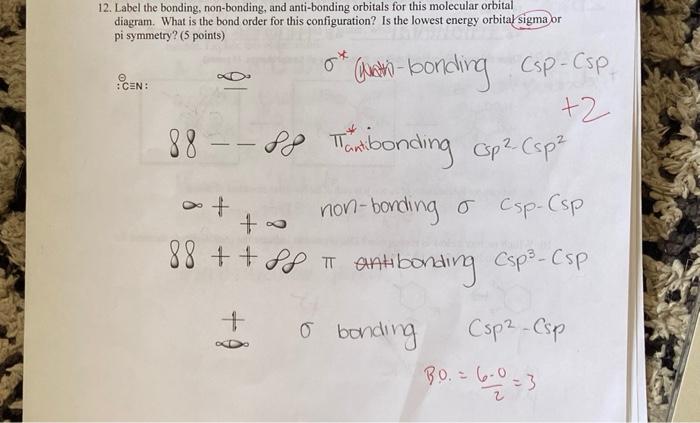 12. Label the bonding, non-bonding, and anti-bonding orbitals for this molecular orbital
diagram. What is the bond order for this configuration? Is the lowest energy orbital sigma or
pi symmetry? (5 points)
σ* -bonding Csp-Csp
:C≡N:
+2
π* antibonding Csp²-Csp²
non-bonding σ Csp-Csp
π anti bonding Csp³-Csp
σ bonding Csp²-Csp
B.O. = 6-0/2 = 3